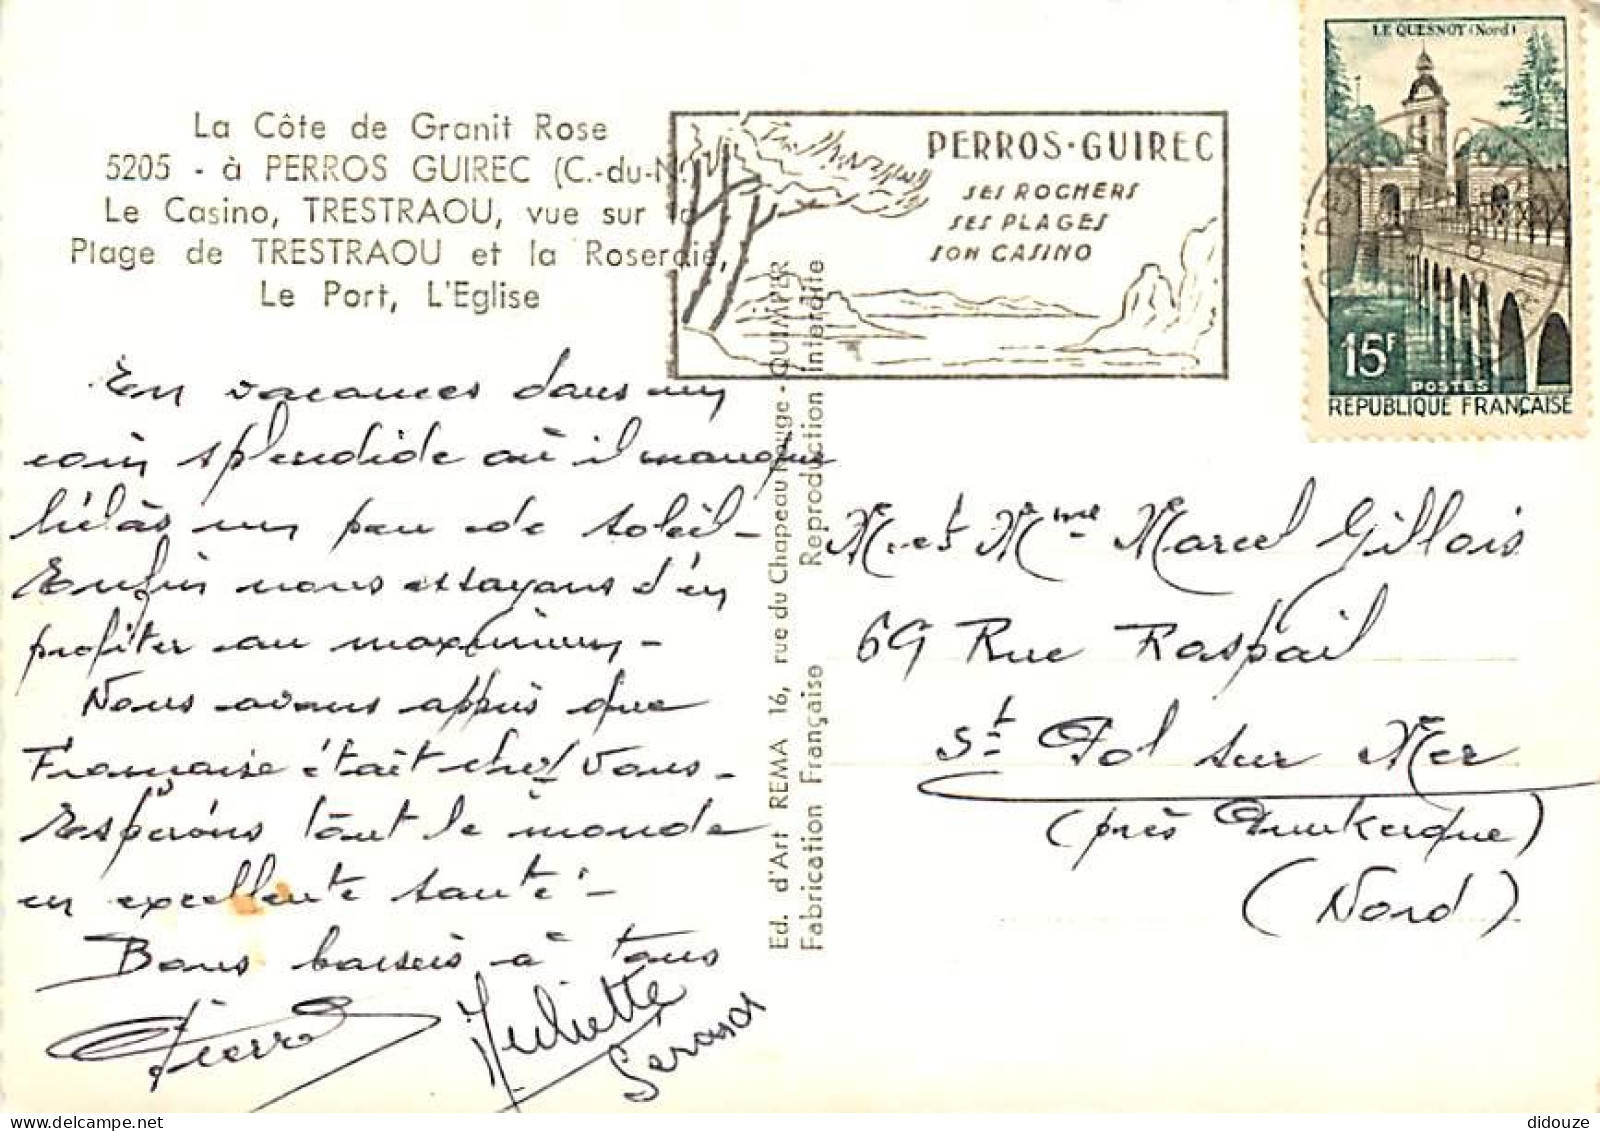 La Côte de Granit Rose
5205 - à PERROS GUIREC (C.-du-N.)
Le Casino, TRESTRAOU, vue sur la
Plage de TRESTRAOU et la Roseraie,
Le Port, L'Eglise
PERROS-GUIREC
SES ROCHERS
SES PLAGES
SON CASINO
LE QUESNOY (Nord)
15F
POSTES
REPUBLIQUE FRANÇAISE
En vacances dans un
coin splendide où il manque
hélàs un peu de soleil -
Enfin nous essayons d'en
profiter au maximum -
Nous avons appris que
Françoise était chez vous -
Espérons tout le monde
en excellente santé -
Bons baisers à tous
Pierre
Juliette
Ed. d'Art REMA 16, rue du Chapeau Rouge - QUIMPER
Fabrication Française Reproduction Interdite
M. et Mme Marcel Gillois
69 Rue Raspail
St Pol sur Mer
(près Dunkerque)
(Nord)
didouze